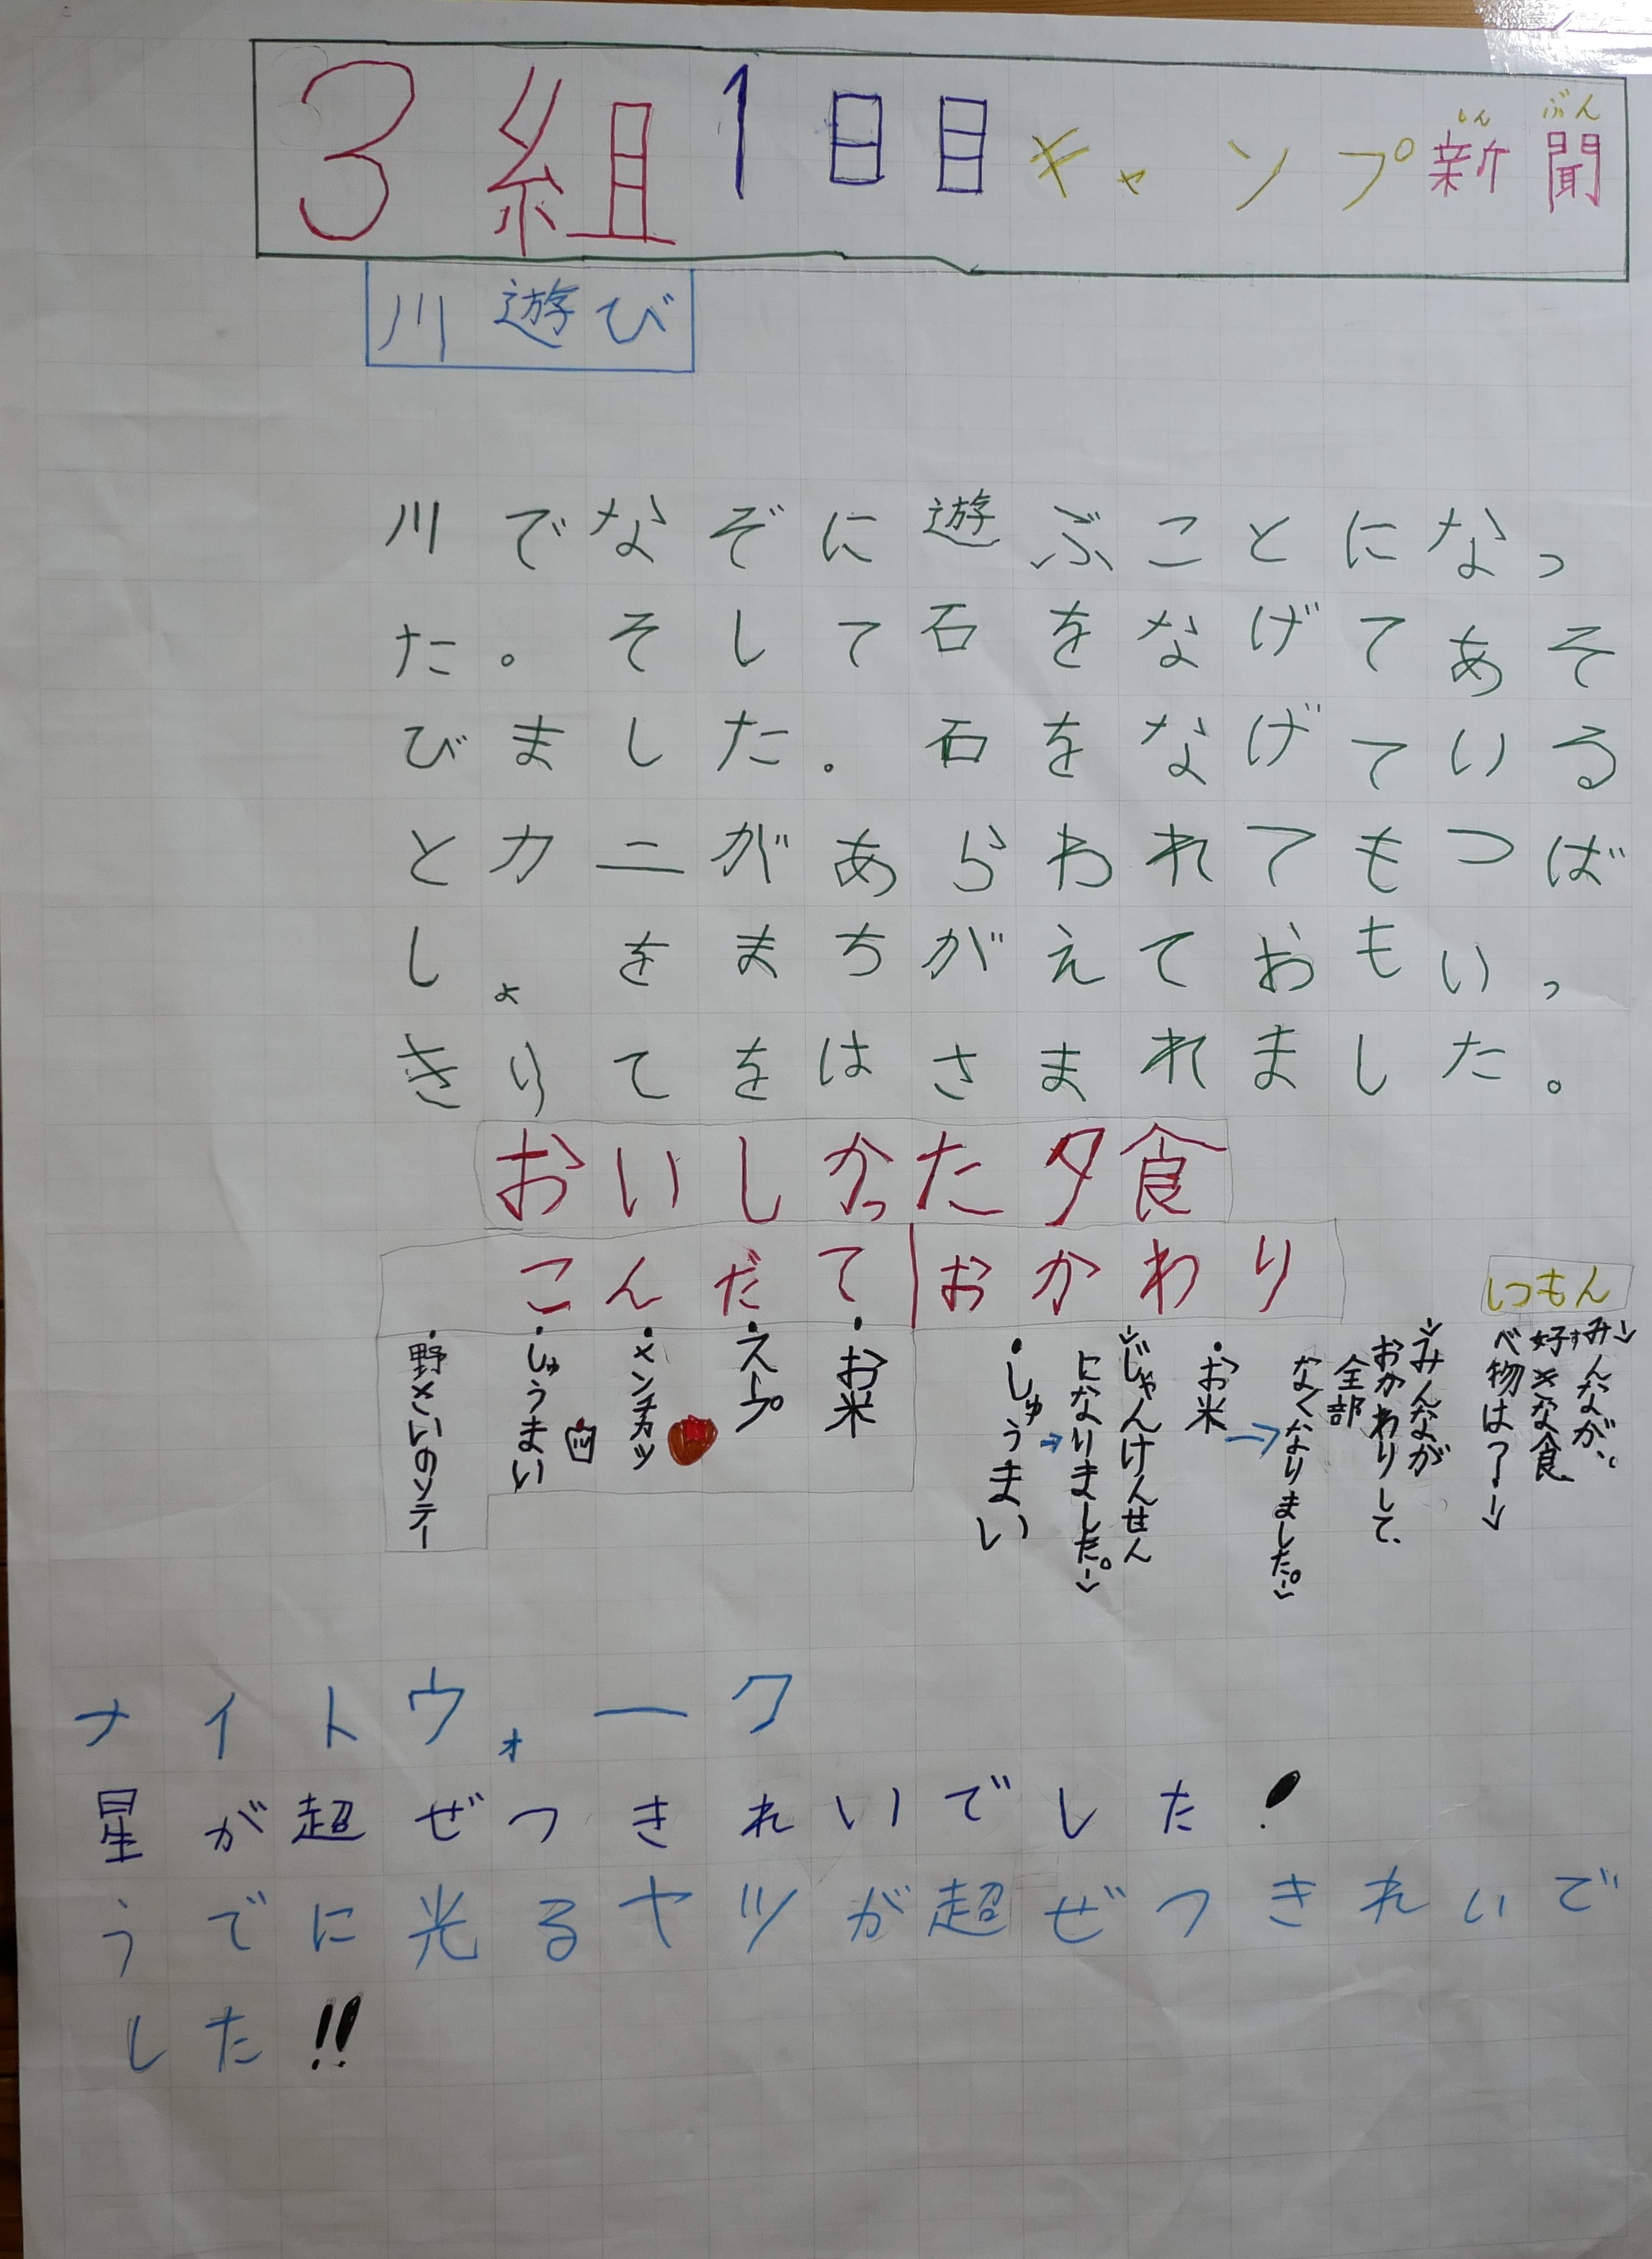 3組1日目キャンプ新聞
しんぶん
川遊び
川でなぞに遊ぶことになっ
た。そして石をなげてあそ
びました。石をなげている
とカニがあらわれてもつば
しょをまちがえておもいっ
きりてをはさまれました。
おいしかった夕食
こんだて
・お米
・スープ
・メンチカツ
・しゅうまい
・野さいのソテー
おかわり
・お米
→みんなが
おかわりして、
全部
なくなりました。
・しゅうまい
→じゃんけんせん
になりました。
しつもん
みんなが、
好きな食
べ物は?
ナイトウォーク
星が超ぜつきれいでした!
うでに光るヤツが超ぜつきれいで
した!!